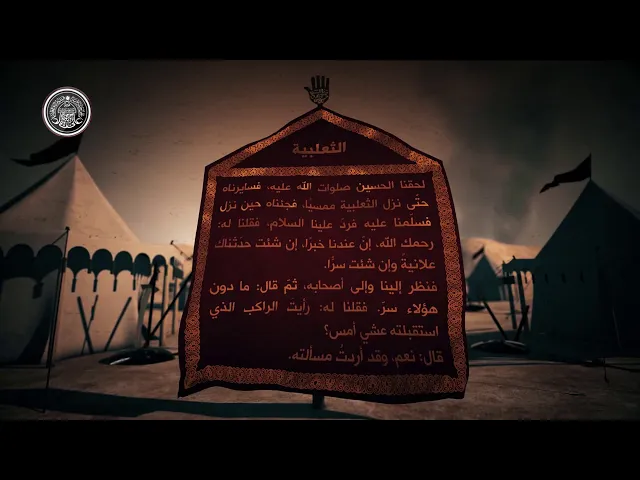 الثعلبية
لحقنا الحسين صلوات الله عليه، فسايرناه
حتّى نزل الثعلبية ممسيًا، فجئناه حين نزل
فسلّمنا عليه فردّ علينا السلام، فقلنا له:
رحمك الله، إنّ عندنا خبرًا، إن شئت حدّثناك
علانيةً وإن شئت سرًا.
فنظر إلينا وإلى أصحابه، ثمّ قال: ما دون
هؤلاء سرّ. فقلنا له: رأيت الراكب الذي
استقبلته عشي أمس؟
قال: نعم، وقد أردتُ مسألته.